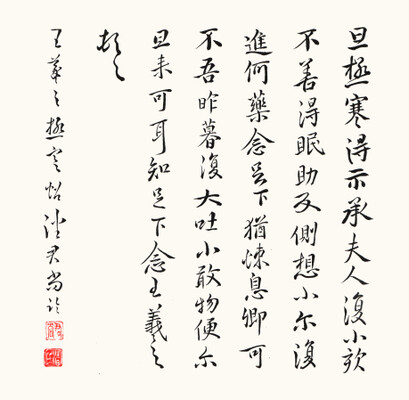 旦極寒得示承夫人復小欬
不善得眠助反側想小尔復
進何藥念足下猶悚息卿可
不吾昨暮復大吐小敢物便尔
旦来可耳知足下念王羲之
頓首
王羲之極寒帖 君尚